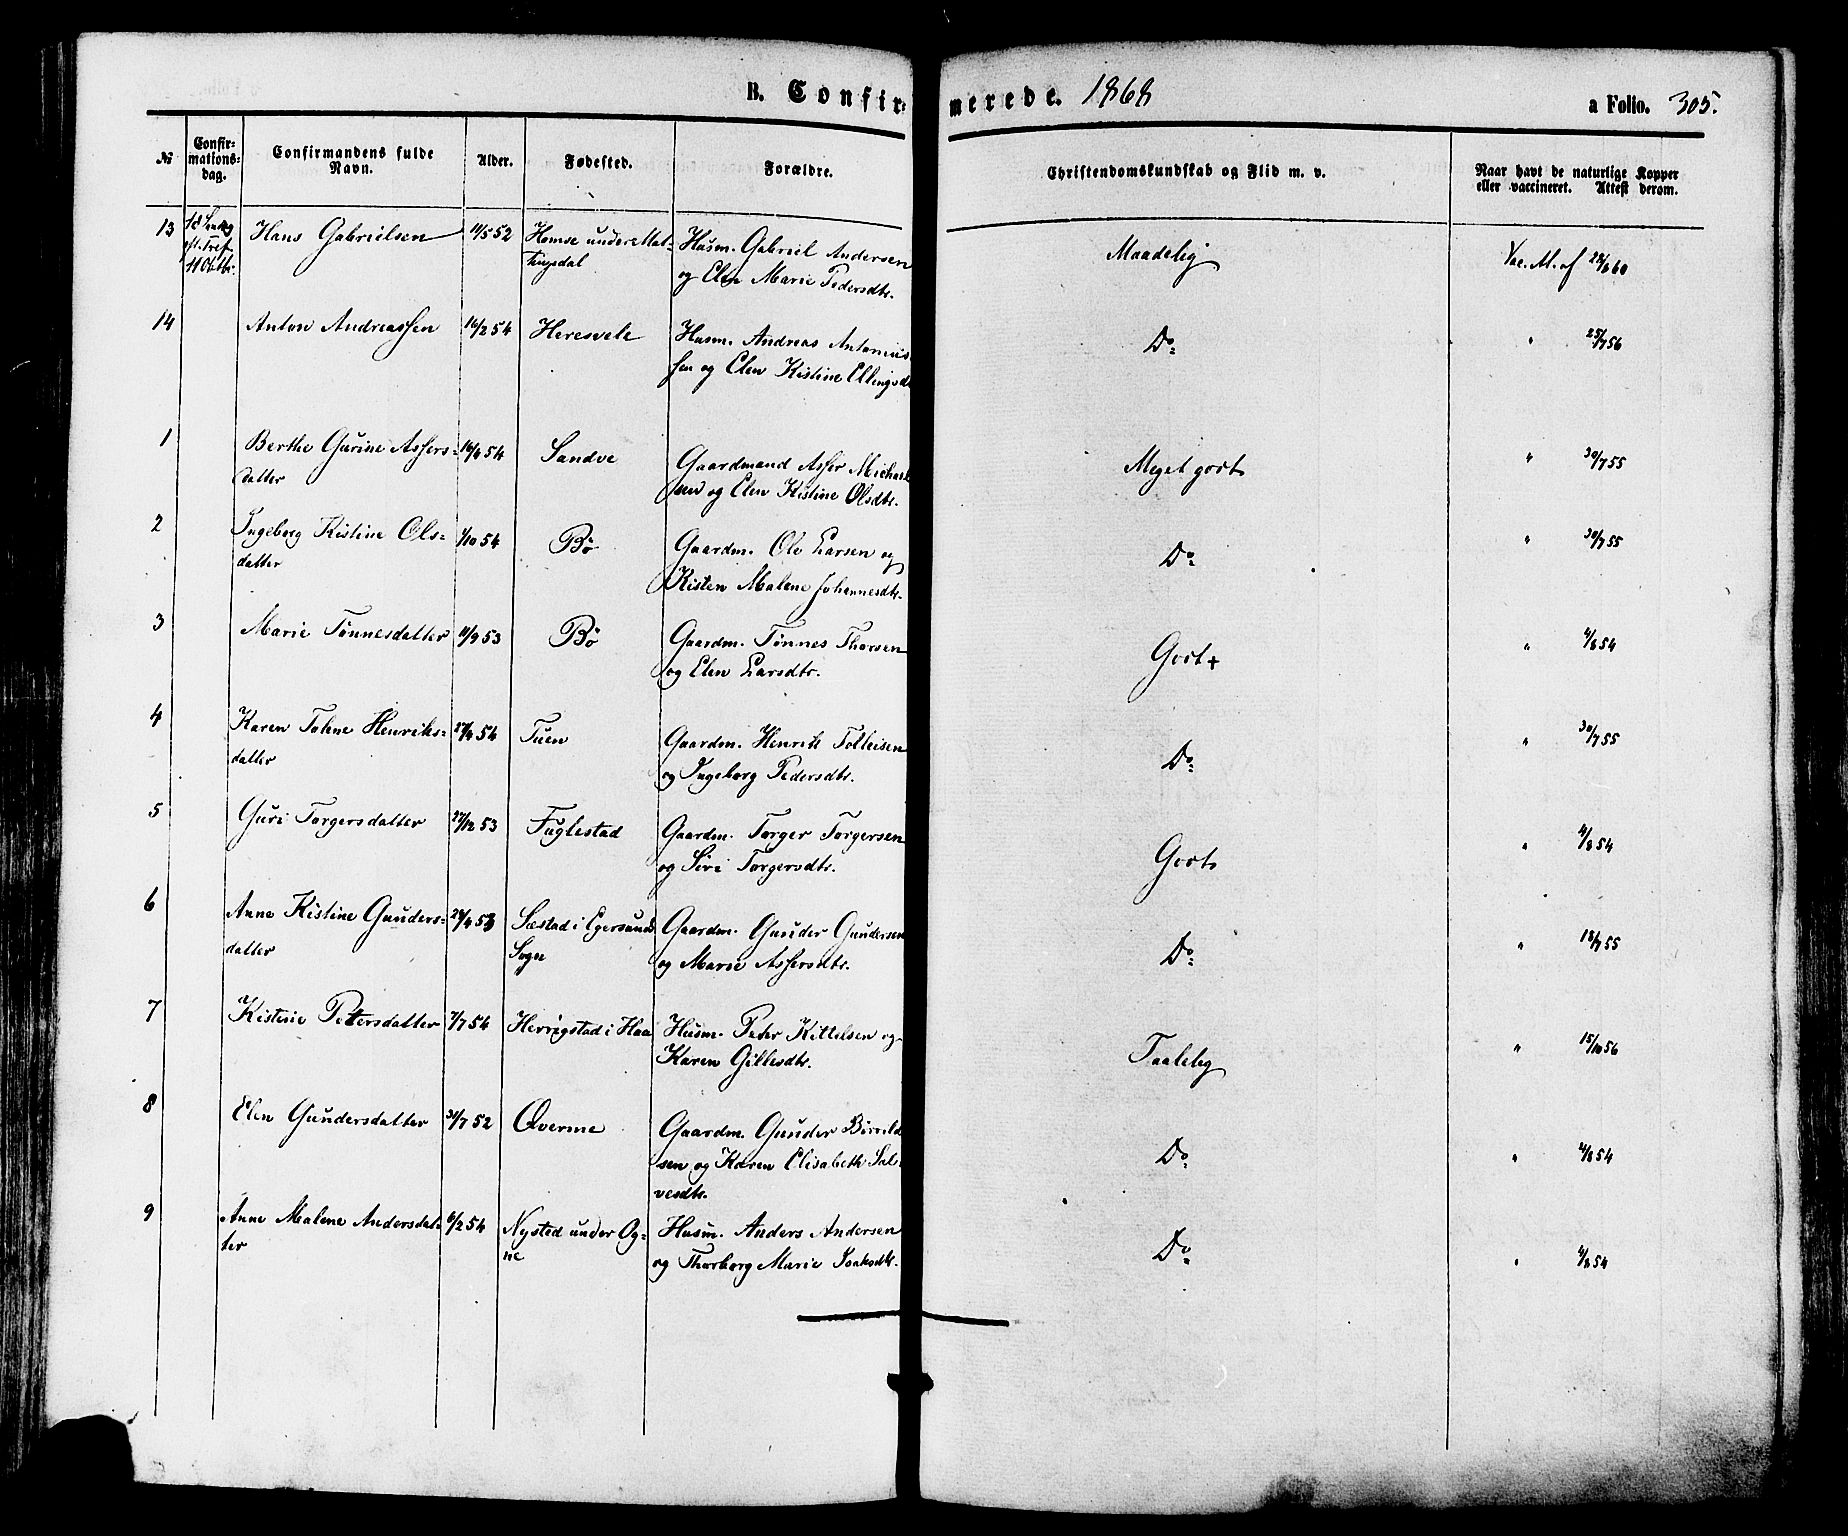 B. Confirmerede. 1868
a Folio. 305.
№ Confirmations-dag. Confirmandens fulde Navn. Alder. Fødested. Forældre. Christendomskundskab og Flid m. v. Naar havt de naturlige Kopper eller vaccineret. Attest derom.
13 18 Søndag eft. Tref. 11 Octbr. Hans Gabrielsen 11/5 52 Homse under Mat-
tingsdal Husm. Gabriel Andersen
og Elen Marie Pedersdtr. Maadelig Vac. At. af 28/8 60
14 Anton Andreassen 16/2 54 Heresvele Husm. Andreas Antonius
sen og Elen Kistine Ellingsd Do 25/7 56
1 Berthe Gurine Assers-
datter 16/4 54 Sandve Gaardmand Asser Michael
sen og Elen Kistine Olsdtr. Meget godt " 30/7 55
2 Ingeborg Kistine Ols-
datter 1/10 54 Bø Gaardm. Ole Larsen og
Kisten Malene Johannesdtr. Do " 30/7 55
3 Marie Tønnesdatter 11/9 53 Bø Gaardm. Tønnes Thorsen
og Elen Larsdtr. Godt + " 4/8 54
4 Karen Toline Henriks-
datter 54 Tuen Gaardm. Henrik Tolleisen
og Ingeborg Pedersdtr. Do " 30/7 55
5 Guri Torgersdatter 27/12 53 Fuglestad Gaardm. Torger Torgersen
og Siri Torgersdtr. Godt " 4/8 54
6 Anne Kistine Gunders-
datter 53 Sæstad i Egersunds
Sogn Gaardm. Gunder Gundersen
og Marie Assersdtr. Do " 18/7 55
7 Kistine Pettersdatter 7/7 54 Herrigstad i Haa Husm. Peter Kittelsen og
Karen Gillesdtr. Taalelig " 15/10 56
8 Elen Gundersdatter 31/7 52 Qverme Gaardm. Gunder Børrild
sen og Karen Elisabeth Sal-
vesdtr. Do " 4/8 54
9 Anne Malene Andersdat-
ter 6/2 54 Nysted under Og-
ne Husm. Anders Andersen
og Thorborg Marie Isaksdtr. Do " 4/8 54